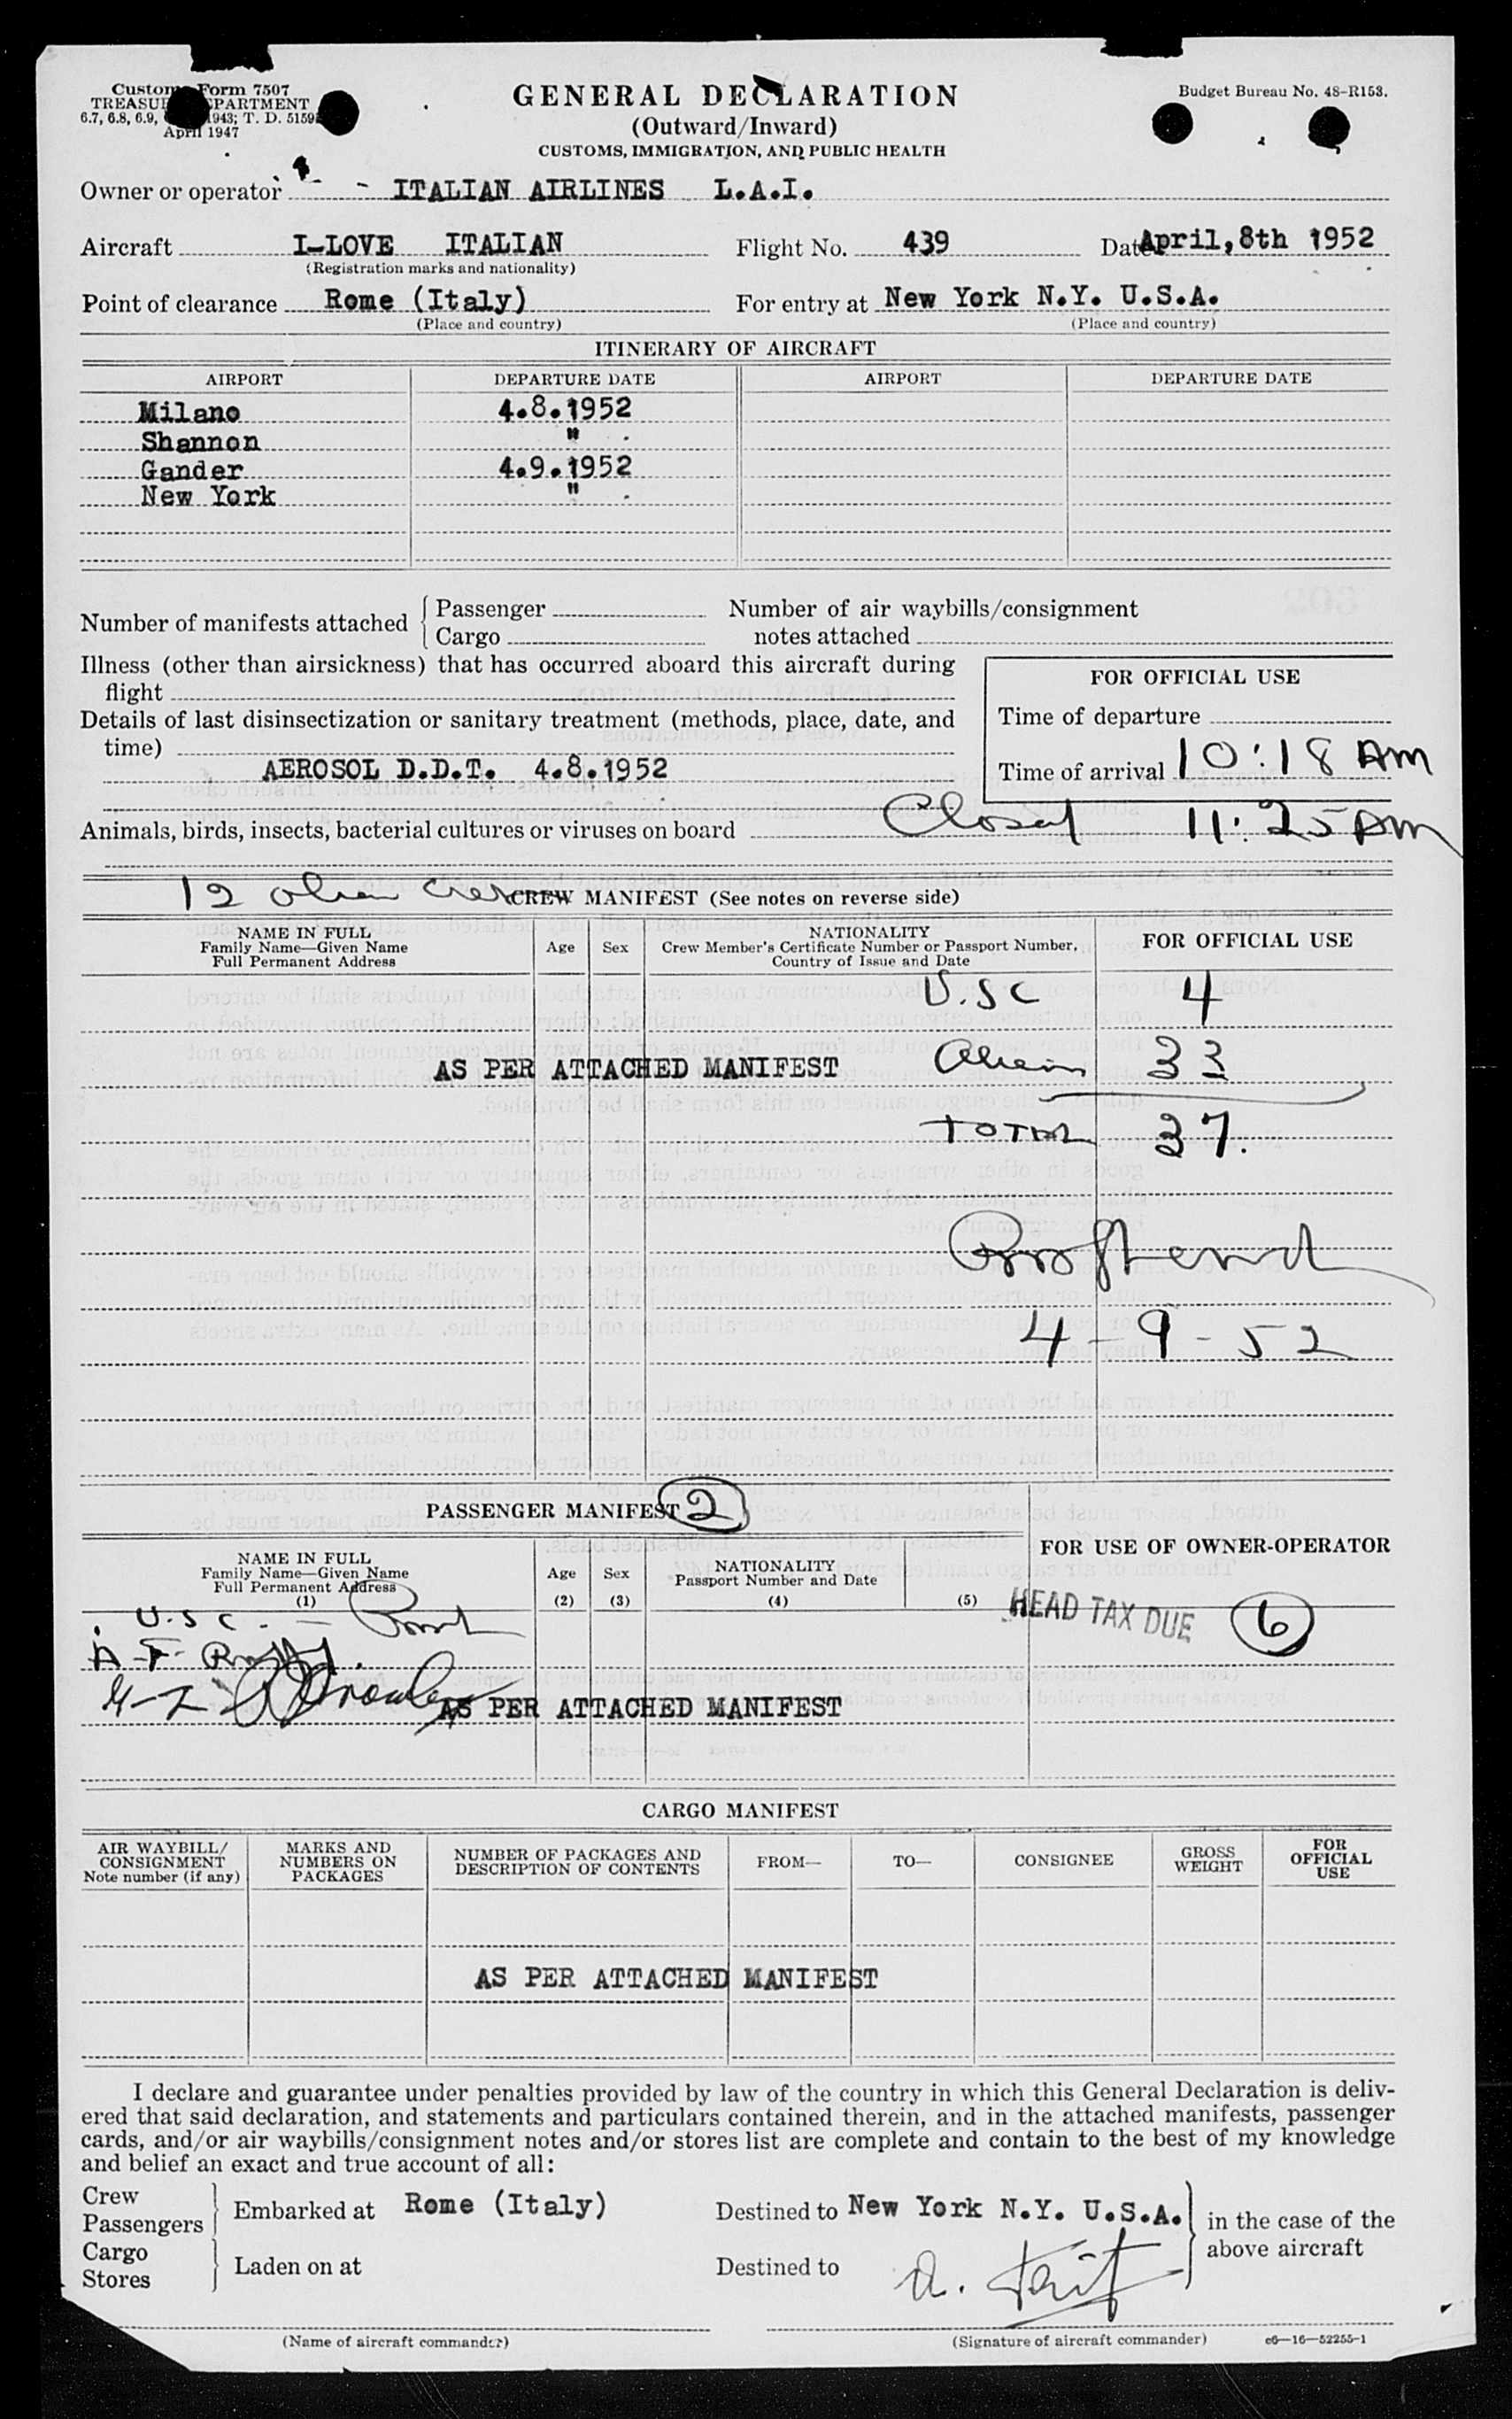 Customs Form 7507
TREASURY DEPARTMENT
6.7, 6.8, 6.9, 1943; T. D. 5159
April 1947
GENERAL DECLARATION
(Outward/Inward)
CUSTOMS, IMMIGRATION, AND PUBLIC HEALTH
Budget Bureau No. 48-R153.
Owner or operator - ITALIAN AIRLINES L.A.I.
Aircraft I-LOVE ITALIAN Flight No. 439 Date April,8th 1952
(Registration marks and nationality)
Point of clearance Rome (Italy) For entry at New York N.Y. U.S.A.
(Place and country) (Place and country)
ITINERARY OF AIRCRAFT
AIRPORT DEPARTURE DATE AIRPORT DEPARTURE DATE
Milano 4.8.1952
Shannon "
Gander 4.9.1952
New York "
Number of manifests attached { Passenger
Cargo
Number of air waybills/consignment
notes attached
Illness (other than airsickness) that has occurred aboard this aircraft during
flight
Details of last disinsectization or sanitary treatment (methods, place, date, and
time)
AEROSOL D.D.T. 4.8.1952
FOR OFFICIAL USE
Time of departure
Time of arrival 10:18 AM
Closed 11:25 AM
Animals, birds, insects, bacterial cultures or viruses on board
12 alien crew
CREW MANIFEST (See notes on reverse side)
NAME IN FULL
Family Name—Given Name
Full Permanent Address
Age Sex
NATIONALITY
Crew Member's Certificate Number or Passport Number,
Country of Issue and Date
FOR OFFICIAL USE
U.SC 4
AS PER ATTACHED MANIFEST
Alien 33
TOTAL 37.
4-9-52
PASSENGER MANIFEST 2
FOR USE OF OWNER-OPERATOR
NAME IN FULL
Family Name—Given Name
Full Permanent Address
(1)
Age
(2)
Sex
(3)
NATIONALITY
Passport Number and Date
(4)
(5)
HEAD TAX DUE 6
U.S C. -
AS PER ATTACHED MANIFEST
CARGO MANIFEST
AIR WAYBILL/
CONSIGNMENT
Note number (if any)
MARKS AND
NUMBERS ON
PACKAGES
NUMBER OF PACKAGES AND
DESCRIPTION OF CONTENTS
FROM—
TO—
CONSIGNEE
GROSS
WEIGHT
FOR
OFFICIAL
USE
AS PER ATTACHED MANIFEST
I declare and guarantee under penalties provided by law of the country in which this General Declaration is deliv-
ered that said declaration, and statements and particulars contained therein, and in the attached manifests, passenger
cards, and/or air waybills/consignment notes and/or stores list are complete and contain to the best of my knowledge
and belief an exact and true account of all:
Crew
Passengers } Embarked at Rome (Italy) Destined to New York N.Y. U.S.A.
Cargo
Stores } Laden on at Destined to
in the case of the
above aircraft
(Name of aircraft commander) (Signature of aircraft commander) c6—16—52255-1